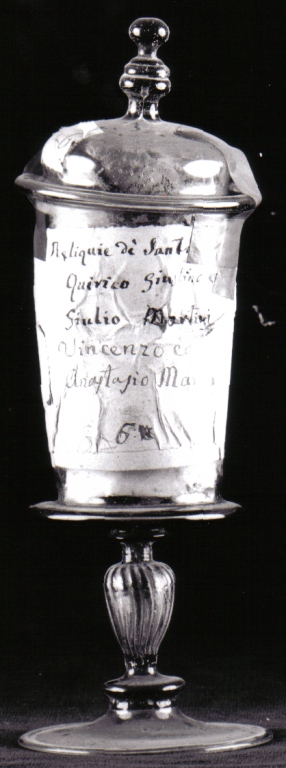 Reliquie di Sant
Quirico Giustino e
Giulio Martiri
Vincenzo e
Anastasio Mar
6